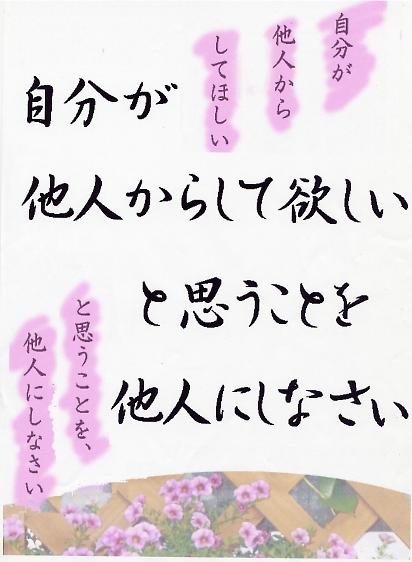 自分が
他人から
してほしい
自分が
他人からして欲しい
と思うことを
他人にしなさい
と思うことを、
他人にしなさい